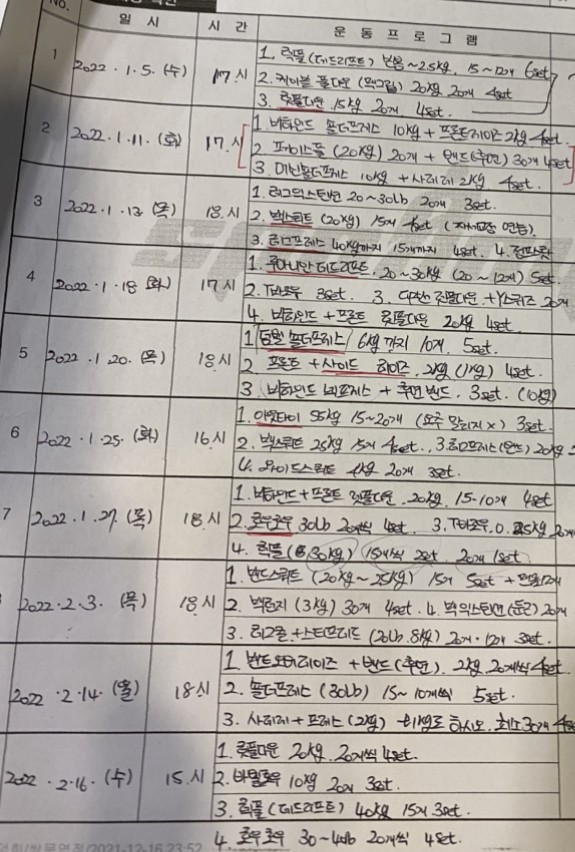 NO. 일 시 시 간 운 동 프 로 그 램
1 2022.1.5.(수) 17시
1. 랙풀(데드리프트) 빈봉~25kg. 15~12개 6set
2. 케이블 풀다운 (맥그립) 20kg 20개 4set
3. 랫풀다운 15kg 20개 4set.
2 2022.1.11.(화) 17.시
1. 비하인드 숄더프레스 10kg + 프론트레이즈 2kg 4set.
2. 페이스풀 (20kg) 20개 + 밴드(후면) 30개 4set
3. 머신숄더프레스 10kg + 사레레 2kg 4set.
3 2022.1.13(목) 18.시
1. 레그익스텐션 20~30lb 20개 3set.
2. 백스쿼트 (20kg) 15개 4set (자세교정 연습)
3. 레그프레스 40kg까지 15개까지 4set. 4. 점프스쿼트
4 2022.1.18(화) 17시
1. 루마니안 데드리프트. 20~30kg (20~12개) 5set.
2. T바로우 3set. 3. 랫풀다운 + Y스퀴즈 20개
4. 비하인드 + 프론트 랫풀다운 20kg 4set.
5 2022.1.20.(목) 18시
1. 덤벨 숄더프레스 6kg까지 10개. 5set.
2. 프론트 + 사이드 레이즈. 2kg (1kg) 4set.
3. 비하인드 넥프레스 + 후면 밴드. 3set. (10kg)
6 2022.1.25.(화) 16시
1. 이너타이 55kg 15~20개 (요추 말리지x) 3set.
2. 백스쿼트 25kg 15개 4set., 3. 레그프레스(와이드) 20kg
4. 와이드스쿼트 4kg 20개 3set.
7 2022.1.27.(목) 18시
1. 비하인드 + 프론트 랫풀다운. 20kg. 15-10개 4set
2. 로우로우 30lb 20개씩 4set. 3. T바로우. 0.25kg 20개
4. 랙풀 (30kg) 15개씩 2set. 20개 1set.
2022.2.3.(목) 18.시
1. 밴드스쿼트 (20kg~25kg) 15개 5set +
2. 백런지 (3kg) 30개 4set. 4. 백익스텐션(둔근) 20개
3. 레그컬 + 스티프데드 (20lb. 8kg) 20개. 12개 3set.
2022.2.14.(월) 18시
1. 밴드오버레이즈 + 밴드(후면). 2kg 20개씩 4set.
2. 숄더프레스 (30lb) 15~10개씩 5set.
3. 사레레 + 프레스 (2kg) 최소 30개 4set
2022.2.16.(수) 15.시
1. 랫풀다운 20kg. 20개씩 4set.
2. 바벨로우 10kg 20개 3set.
3. 랙풀 (데드리프트) 40kg 15개 3set.
4. 로우로우 30~40lb 20개씩 4set.
2021-12-16 23:52